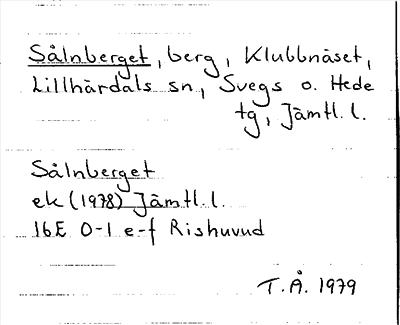 Sålnberget, berg, Klubbnäset,
Lillhärdals sn, Svegs o. Hede
tg, Jämtl. l.
Sålnberget
ek (1978) Jämtl. l.
16E 0-1 e-f Rishuvud
T.Å. 1979